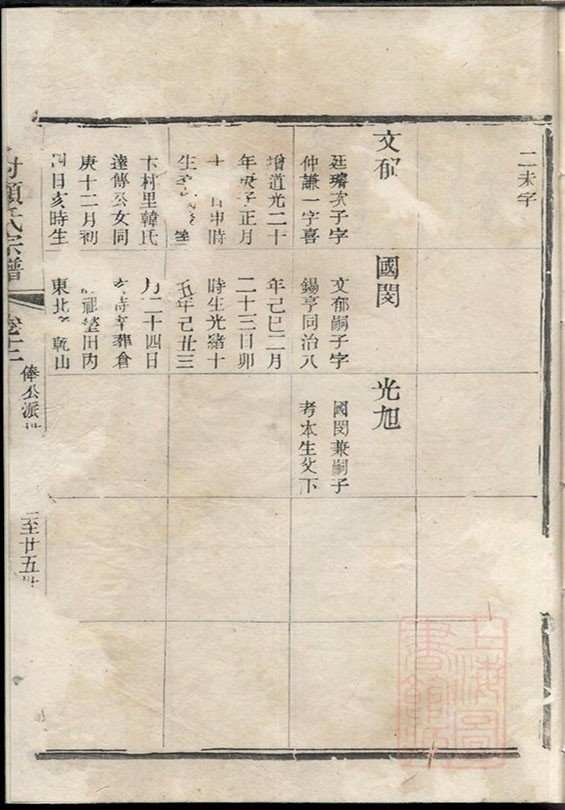 二未字
文郁
廷璿次子字
仲謙一字喜
增道光二十
年庚子正月
十 日申時
生
卞村里韓氏
達傳公女同
庚十二月初
四日亥時生
國閔
文郁嗣子字
錫亨同治八
年己巳二月
二十三日卯
時生光緒十
五年己丑三
月二十四日
時卒葬倉
祖塋田內
東北 乾山
光旭
國閔兼嗣子
考本生父下
村顧氏宗譜
卷十二
俸公派世
至廿五世
上海圖書館藏